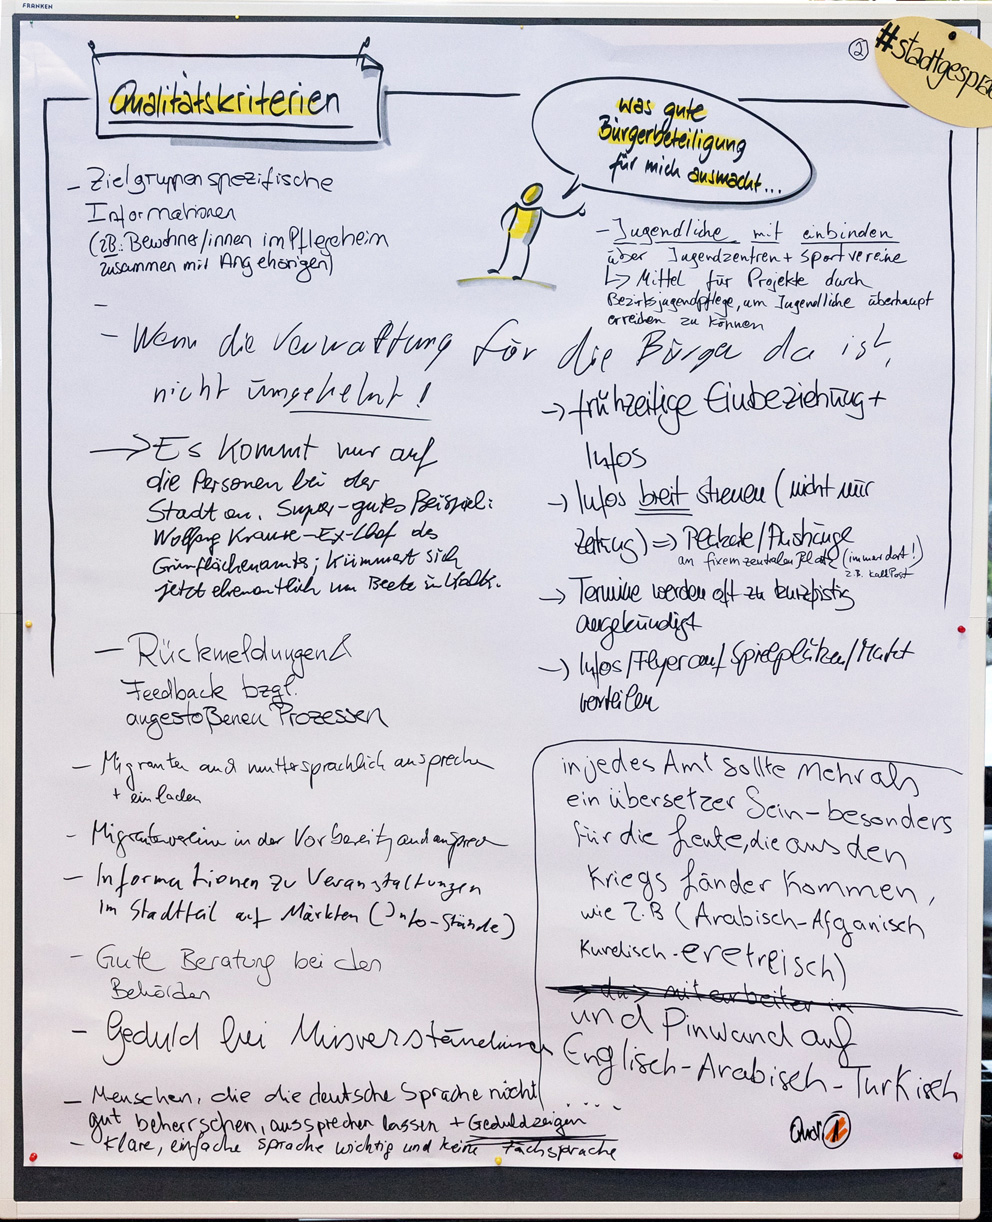 FRANKEN
②
#stadtgespr
Qualitätskriterien
was gute
Bürgerbeteiligung
für mich ausmacht...
- Zielgruppenspezifische
Informationen
(zB: Bewohner/innen im Pflegeheim
zusammen mit Angehörigen)
-
- Jugendliche mit einbinden
über Jugendzentren + Sportvereine
↳ Mittel für Projekte durch
Bezirksjugendpflege, um Jugendliche überhaupt
erreichen zu können
- Wenn die Verwaltung für die Bürger da ist,
nicht umgekehrt!
→ Es kommt nur auf
die Personen bei der
Stadt an. Super-gutes Beispiel:
Wolfgang Krause-Ex-Chef des
Grünflächenamts; kümmert sich
jetzt ehrenamtlich um Beete in Kalk.
- Rückmeldungen &
Feedback bzgl.
angestoßenen Prozessen
- Migranten auch muttersprachlich ansprechen
+ einladen
- Migrantenvereine in der Vorbereitg auch ansprechen
- Informationen zu Veranstaltungen
im Stadtteil auf Märkten (Info-Stände)
- Gute Beratung bei den
Behörden
- Geduld bei Missverständnissen
- Menschen, die die deutsche Sprache nicht
gut beherrschen, aussprechen lassen + Geduld zeigen
- Klare, einfache sprache wichtig und keine Fachsprache
→ frühzeitige Einbeziehung +
Infos
→ Infos breit streuen (nicht nur
Zeitung) => Plakate/Aushänge
an fixem zentralen Platz (immer dort!)
z.B. KalkPost
→ Termine werden oft zu kurzfristig
angekündigt
→ Infos/Flyer auf Spielplätzen/Markt
verteilen
in jedes Amt sollte mehr als
ein übersetzer Sein-besonders
für die Leute, die aus den
Kriegs Länder kommen,
wie z.B (Arabisch-Afganisch
Kurdisch-eretreisch)
und Pinwand auf
Englisch-Arabisch-Türkisch
....